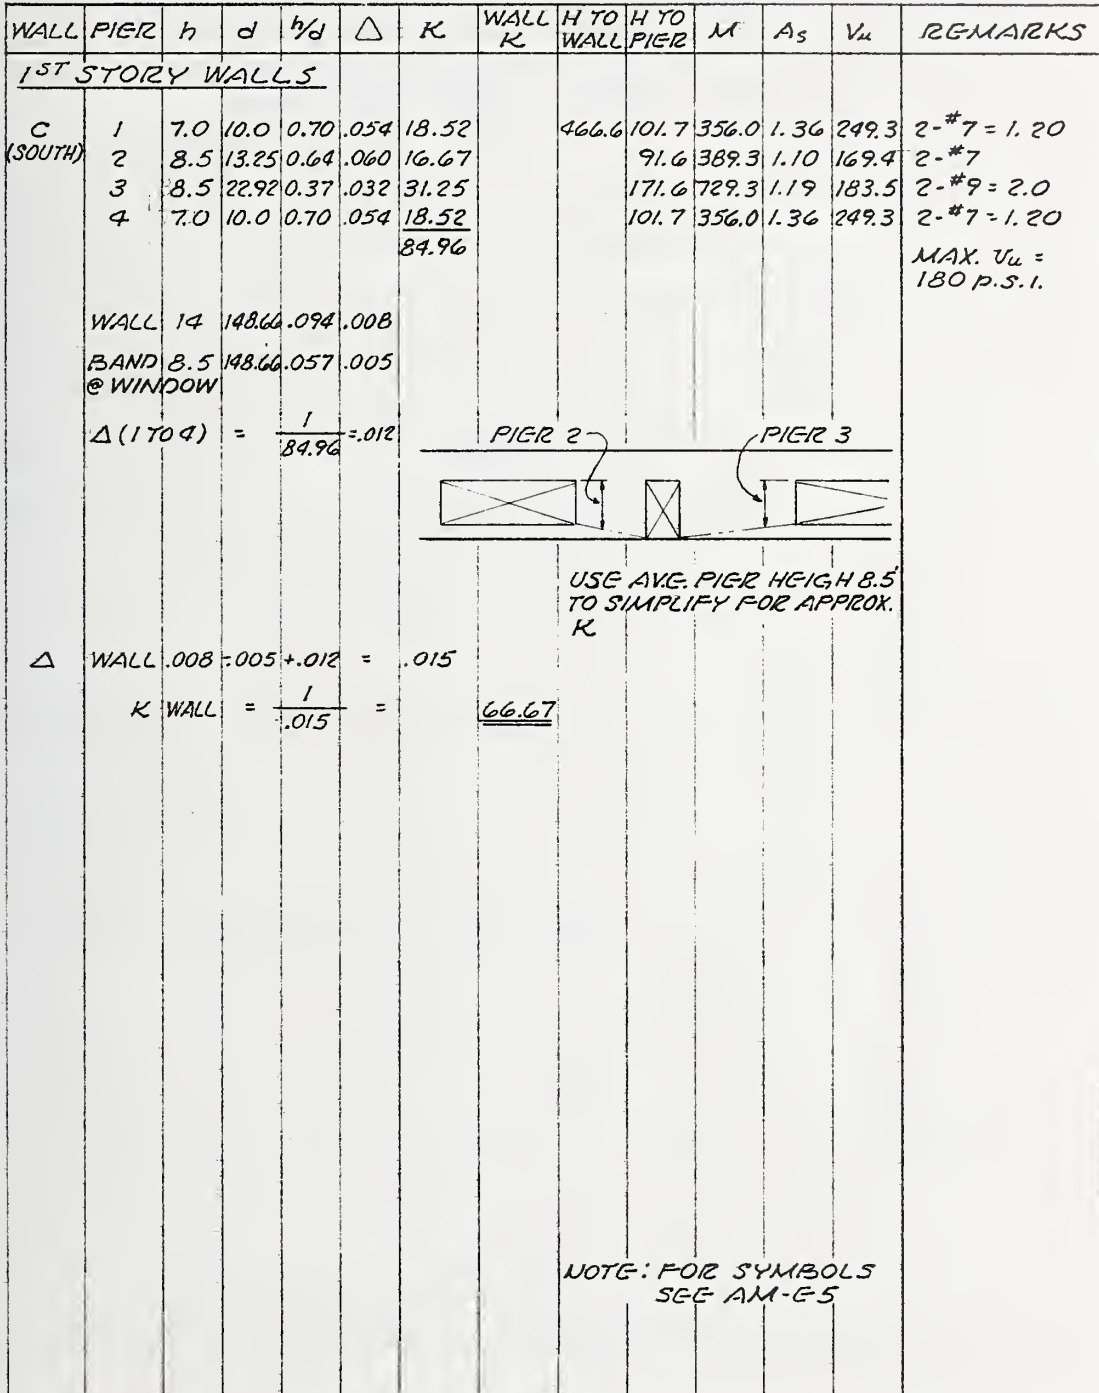 WALL PIER h d h/d Δ K WALL K H TO WALL H TO PIER M As Vu REMARKS
1ST STORY WALLS
C 1 7.0 10.0 0.70 .054 18.52 466.6 101.7 356.0 1.36 249.3 2-#7 = 1.20
(SOUTH) 2 8.5 13.25 0.64 .060 16.67 91.6 389.3 1.10 169.4 2-#7
3 8.5 22.92 0.37 .032 31.25 171.6 729.3 1.19 183.5 2-#9 = 2.0
4 7.0 10.0 0.70 .054 18.52 101.7 356.0 1.36 249.3 2-#7 = 1.20
84.96
MAX. Vu =
180 p.s.i.
WALL 14 148.66 .094 .008
BAND 8.5 148.66 .057 .005
@ WINDOW
Δ (1 TO 4) = 1/84.96 = .012
PIER 2 PIER 3
USE AVE. PIER HEIGH 8.5'
TO SIMPLIFY FOR APPROX.
K
Δ WALL .008 -.005 +.012 = .015
K WALL = 1/.015 = 66.67
NOTE: FOR SYMBOLS
SEE AM-E5